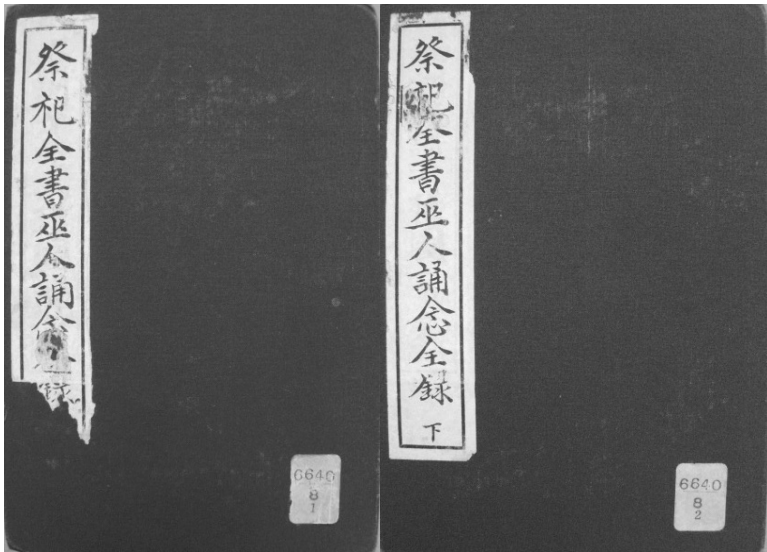 祭祀全書巫人誦念
6640
8
1
祭祀全書巫人誦念全録
下
6640
8
2